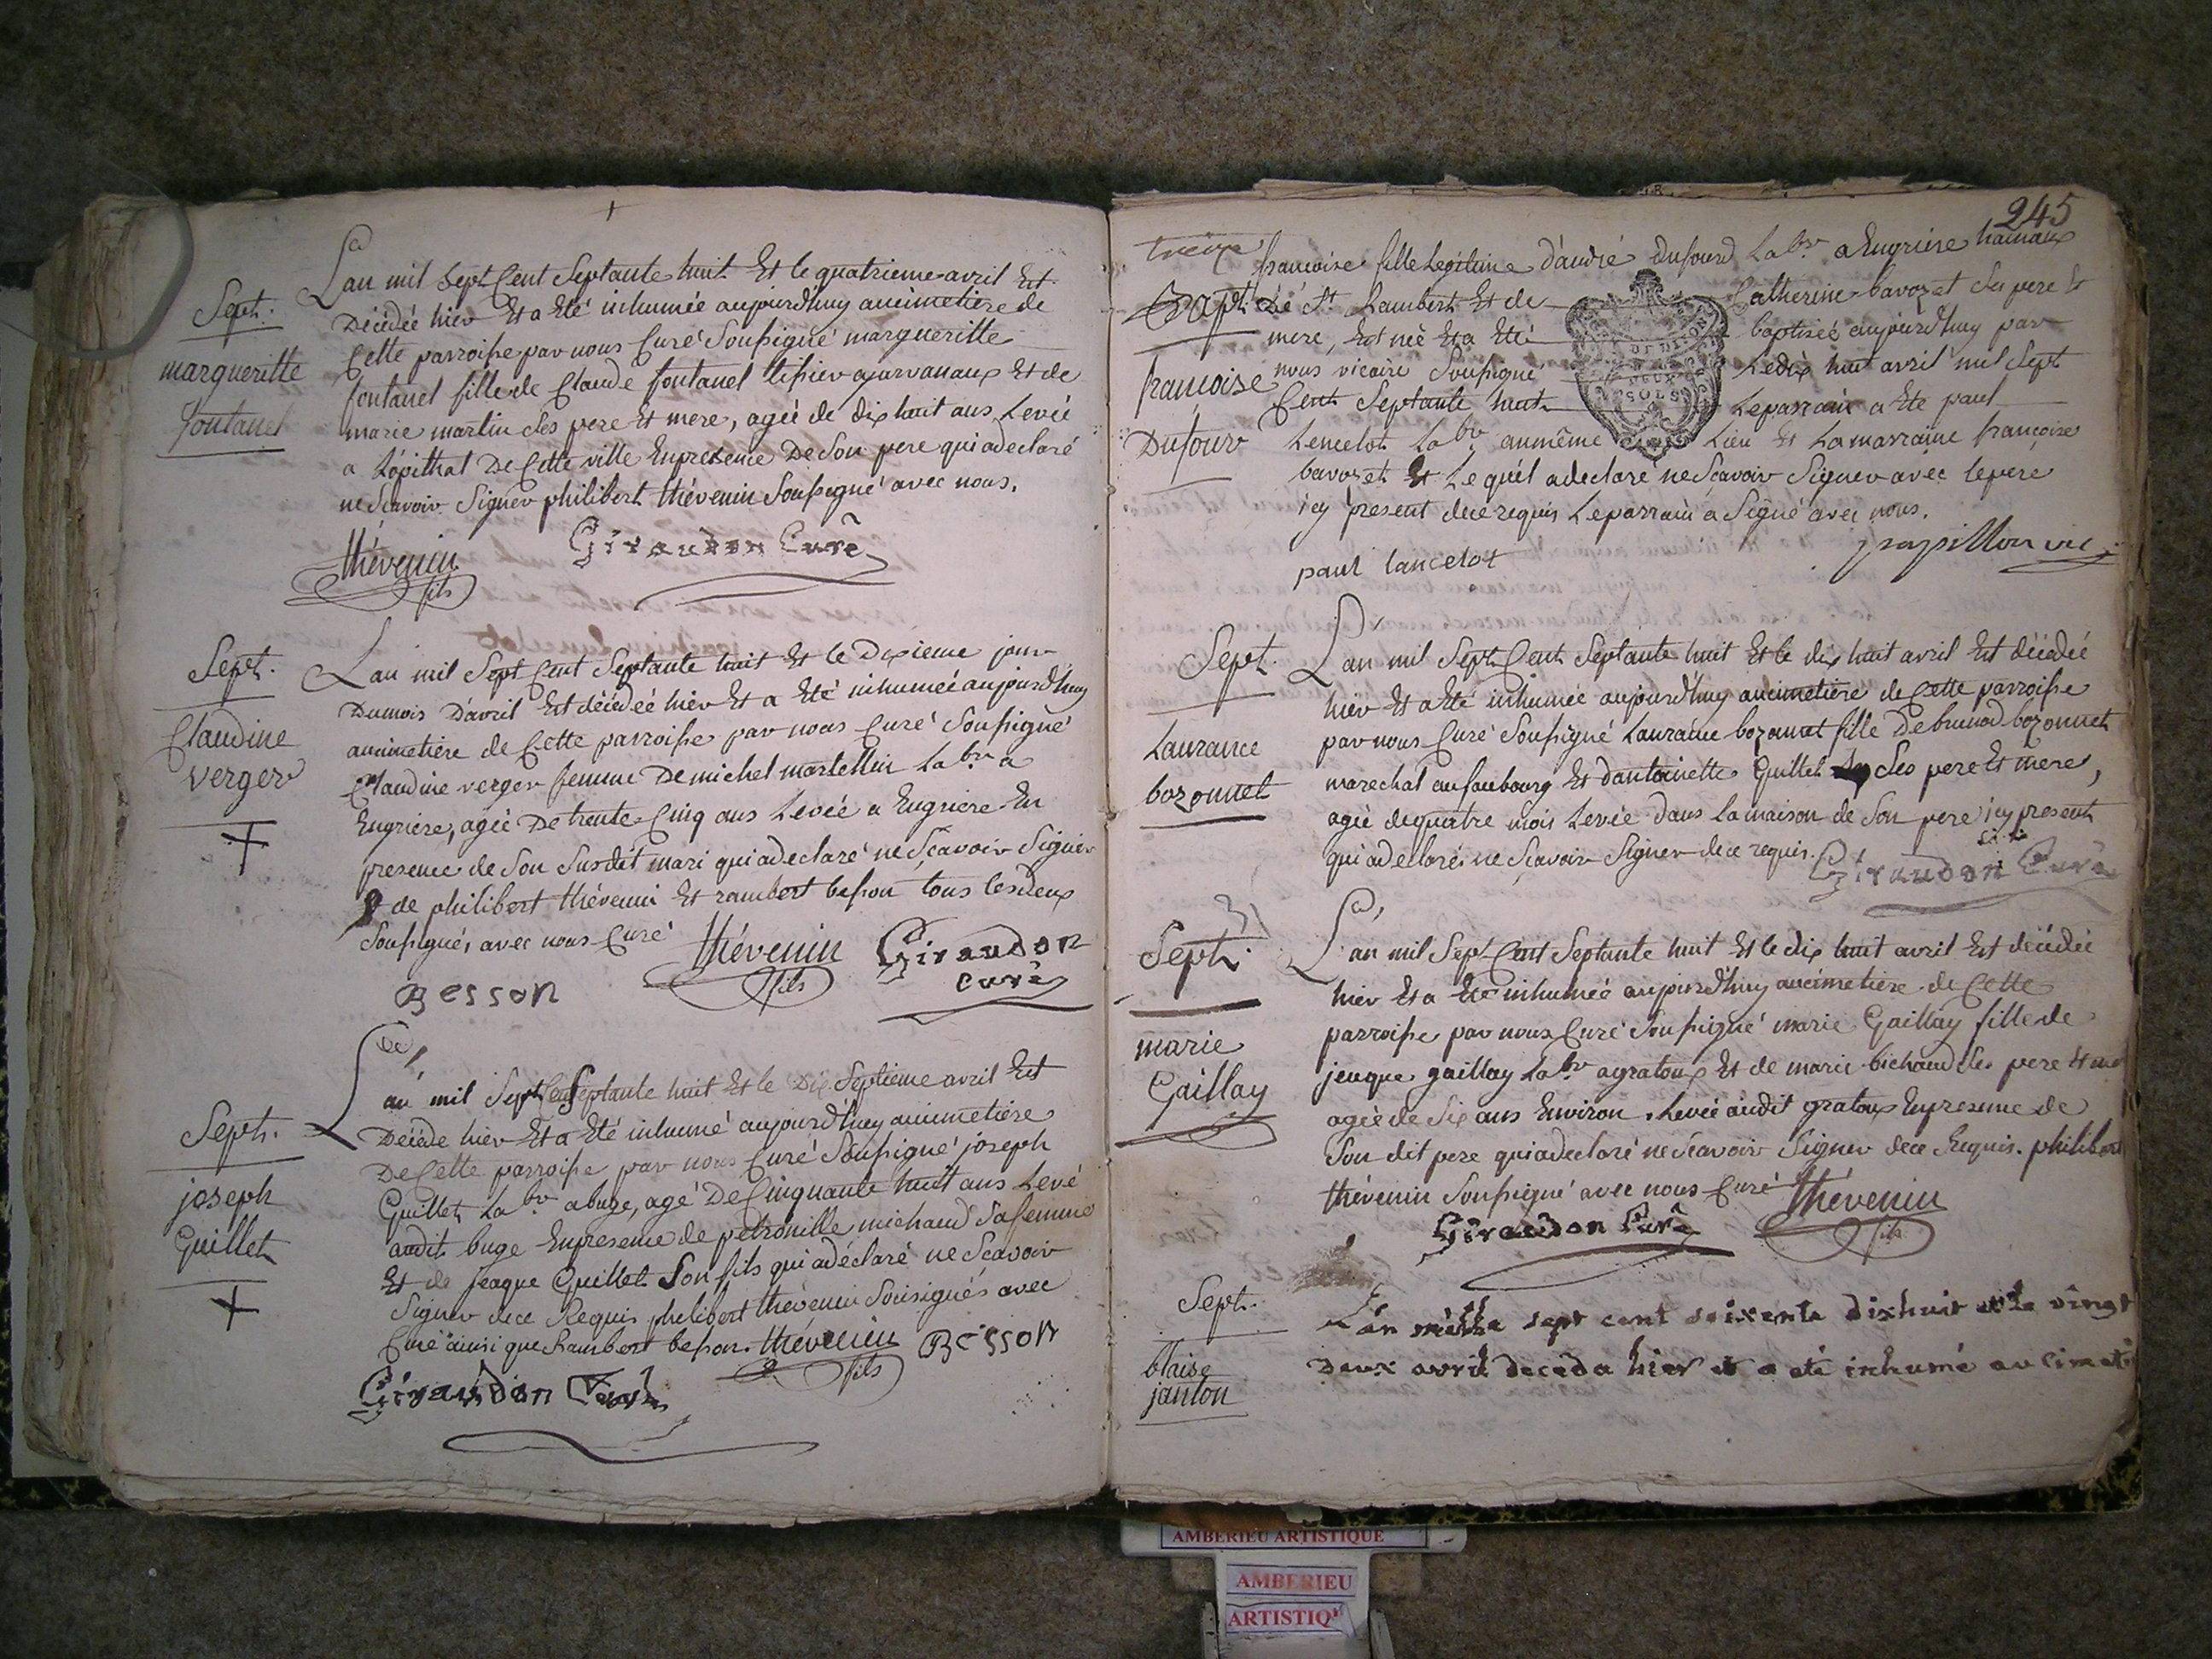 Sept.
margueritte
fontanel
Lan mil Sept Cent Septante huit Et le quatrieme avril Est
Décédée hier Et a Eté inhumée aujourd'huy aucimetiere de
Cette parroisse par nous Curé Soussigné margueritte
fontanel fille de Claude fontanel tissier a Et de
marie martin ses pere Et mere, agée de dix huit ans Levée
a Lôpithal De Cette ville Enpresence De Son pere qui a declaré
ne Scavoir Signer philibert thévenin Soussigné avec nous.
thévenin fils
Giraudon Curé
Sept.
Claudine
verger
Lan mil Sept Cent Septante huit Et le Dixieme jour
Dumois D'avril Est décédéé hier Et a Eté inhumée aujourd'huy
aucimetiere de Cette parroisse par nous Curé Soussigné
Claudine verger femme De michel martellin Labr a
Engriere, agée De trente Cinq ans Levée a Engriere En
presence de Son Susdit mari qui a declaré ne Sçavoir Signer
de philibert thévenin Et rambert besson tous lesdeux
Soussignés avec nous Curé
thévenin fils
Giraudon
curé
Besson
Sept.
joseph
Guillet
Lan mil Sept Cent Septante huit Et le Dix Septieme avril Est
Décéde hier Et a Eté inhumé aujourd'huy aucimetiere
De Cette parroisse par nous Curé Soussigné joseph
Guillet Labr abuge, agé De Cinquante huit ans Levé
audit buge Enpresence de petronille michaud Sa femme
Et de jeaque Guillet Son fils qui a déclaré ne Scavoir
Signer dece Requis philibert thévenin Soussignés avec
Curé ainsi que Rambert besson. thévenin fils Besson
Giraudon Curé
245
treize
Bapt.
francoise
Dufour
francoise fille Legitime d'andré dufourd Labr a Engriere hameau
de St. Rambert Et de Catherine bavozet Ses pere Et
mere, Est née Et a Eté baptisée aujourd'huy par
nous vicaire Soussigné Le dix huit avril mil Sept
Cent Septante huit Le parrain a Ete paul
Lencelot Labr aumême Lieu Et La marraine françoise
bavozet Et Lequél a declaré ne Scavoir Signer avec le peré
icy present dece requis Le parrain a Signé avec nous.
paul lancelot
papillon vic.
DEUX
SOLS
Sept.
Laurance
bozonnet
Lan mil Sept Cent Septante huit Et le dix huit avril Est décédée
hiér Et a Eté inhumée aujourd'huy aucimetiere de Cette parroisse
par nous Curé Soussigné Laurance bozonnet fille De bozonnet
marechal aufaubourg Et dantoinette Guillet Ses pere Et mere,
agée dequatre mois Levée dans La maison de Son pere icy present
qui a declaré ne Sçavoir Signer dece requis.
Giraudon Curé
Sept.
marie
Gaillay
Lan mil Sept Cent Septante huit Et le dix huit avril Est décédée
hier Et a Eté inhumée aujourd'huy aucimetiere de Cette
parroisse par nous Curé Soussigné marie Gaillay fille de
jeaque gaillay Labr agratoux Et de marie bichaud Ses pere Et
agée de Six ans Environ. Levée audit gratoux Enpresence de
Son dit pere qui a declaré ne Scavoir Signer dece Requis. philibert
thévenin Soussigné avec nous Curé thévenin fils
Giraudon Curé
Sept.
blaise
janton
Lan mille sept cent soixente dixhuit et le vingt
Deux avril deceda hier et a eté inhumé au
AMBERIEU ARTISTIQUE
AMBERIEU
ARTISTIQ'